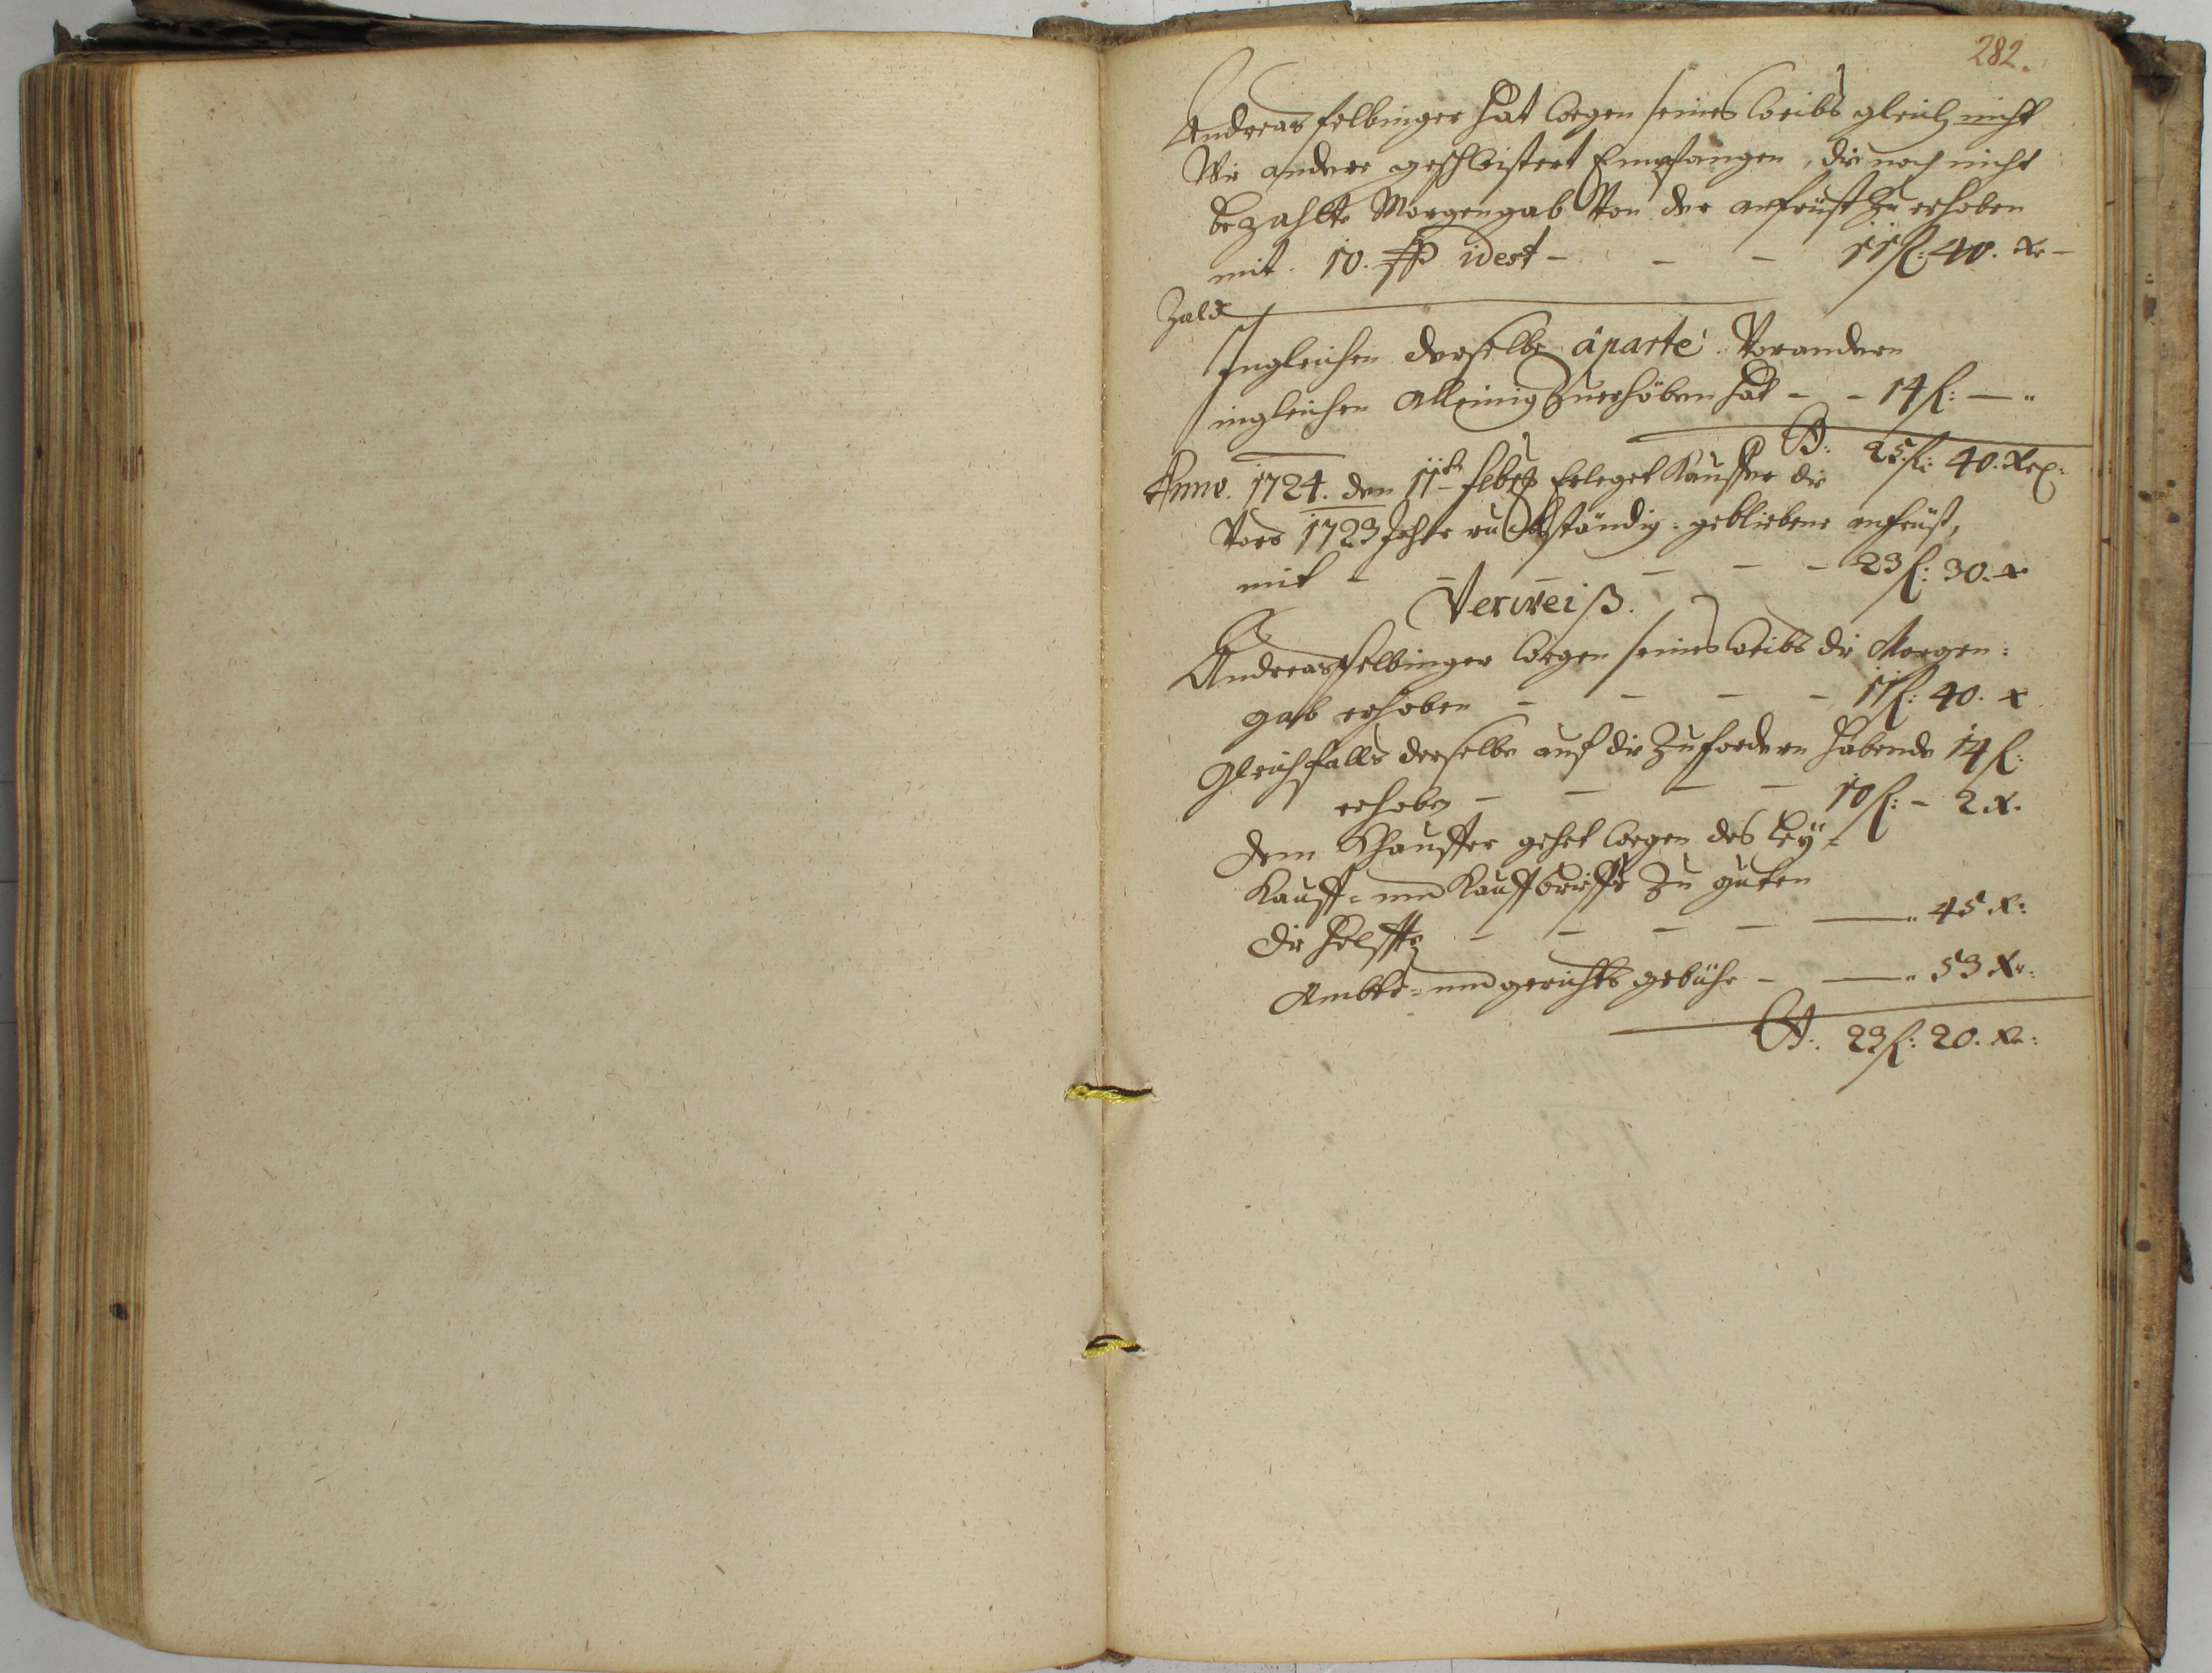 282.
Andreas Felbinger hat wegen seines Weibs gleich nicht
Wie andere geschwistert Empfangen, die noch nicht
bezahlte Morgengab Von der anfrist zu erheben
mit 10. ß idest - - - 11 fl: 40. xr -
Zalt
Ingleichen derselbe áparte Vor andern
ingleichen alleinig Zuerhöben hat - - 14 fl: — "
25 fl: 40. xr:
Anno. 1724. den 11t Feb: Erleget Kauffer die
Vors 1723 Jahr ruckständig: gebliebene anfrist,
mit - - - - - - 23 fl: 30. x
Verweiß.
Andreas Felbinger wegen seines Weibs die Morgen:
gab erhoben - - - - 11 fl: 40. x
Gleichfalls derselbe auf die Zufordern habende 14 fl:
erhoben - - - - 10 fl: - 2 x.
dem Khauffer gehet wegen des Ley=
Kauff= und Kauffbrieffs Zu guten
die Helffte - - - - — " 45 x:
Ambts= und gerichts gebühr - — " 53 xr:
23 fl: 20. xr: